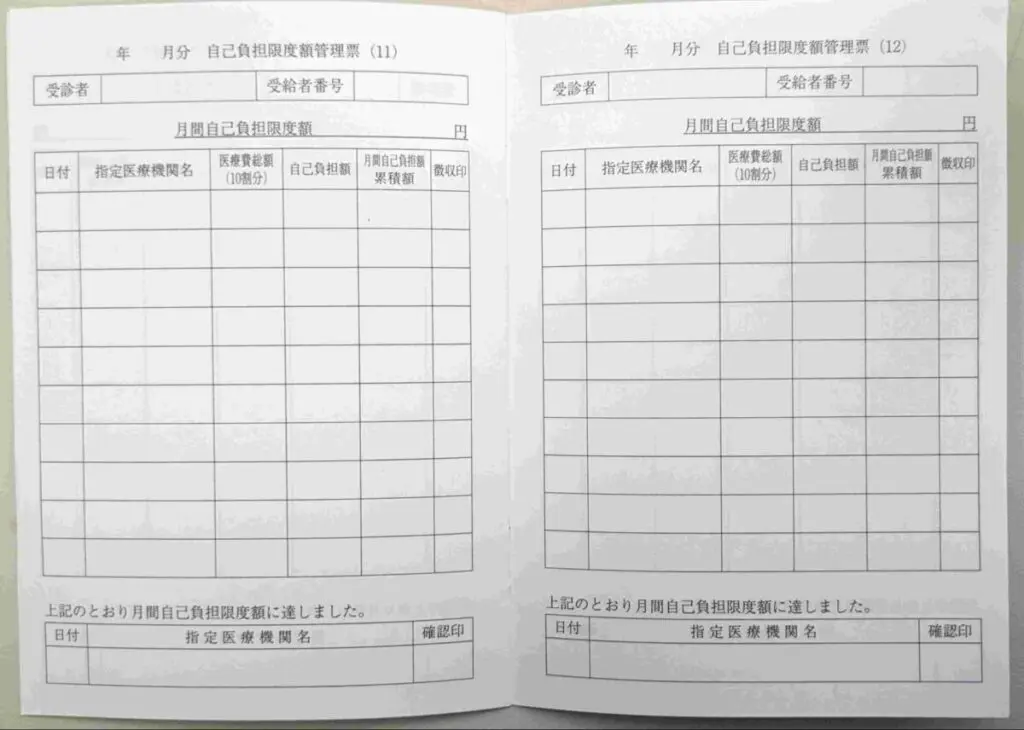 年　月分　自己負担限度額管理票（11）
受診者　受給者番号
月間自己負担限度額　円
日付　指定医療機関名　医療費総額（10割分）　自己負担額　月間自己負担額累積額　徴収印
上記のとおり月間自己負担限度額に達しました。
日付　指定医療機関名　確認印
年　月分　自己負担限度額管理票（12）
受診者　受給者番号
月間自己負担限度額　円
日付　指定医療機関名　医療費総額（10割分）　自己負担額　月間自己負担額累積額　徴収印
上記のとおり月間自己負担限度額に達しました。
日付　指定医療機関名　確認印